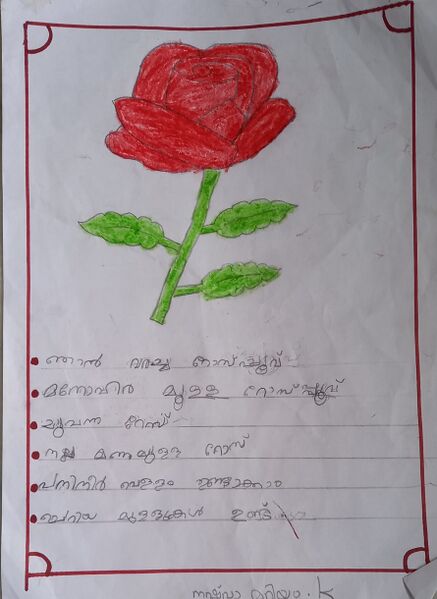 ഞാൻ വരച്ച റോസ്പ്പൂവ്
മുള്ള റോസ്പ്പൂവ്
ചുവന്ന റോസ്
നല്ല മണമുള്ള റോസ്
പനിനീർ വെള്ളം ഉണ്ടാക്കാം
ചെറിയ മുള്ളുകൾ ഉണ്ട്
മറിയം . K